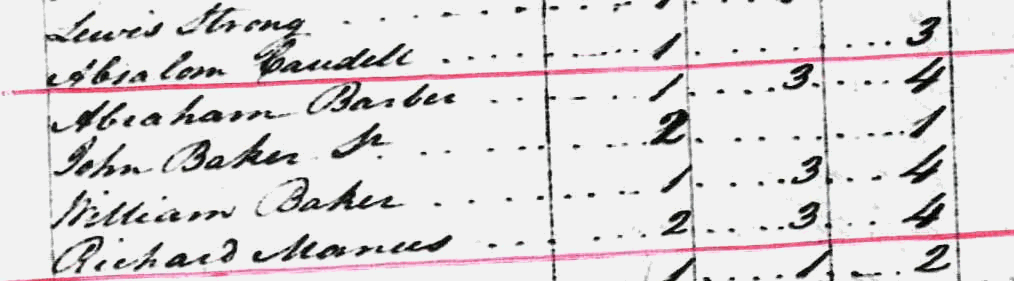 Lewis Strong
Absalom Caudell 1 3
Abraham Barber 1 3 4
John Baker Sr 2 1
William Baker 1 3 4
Richard Manus 2 3 4
1 1 2